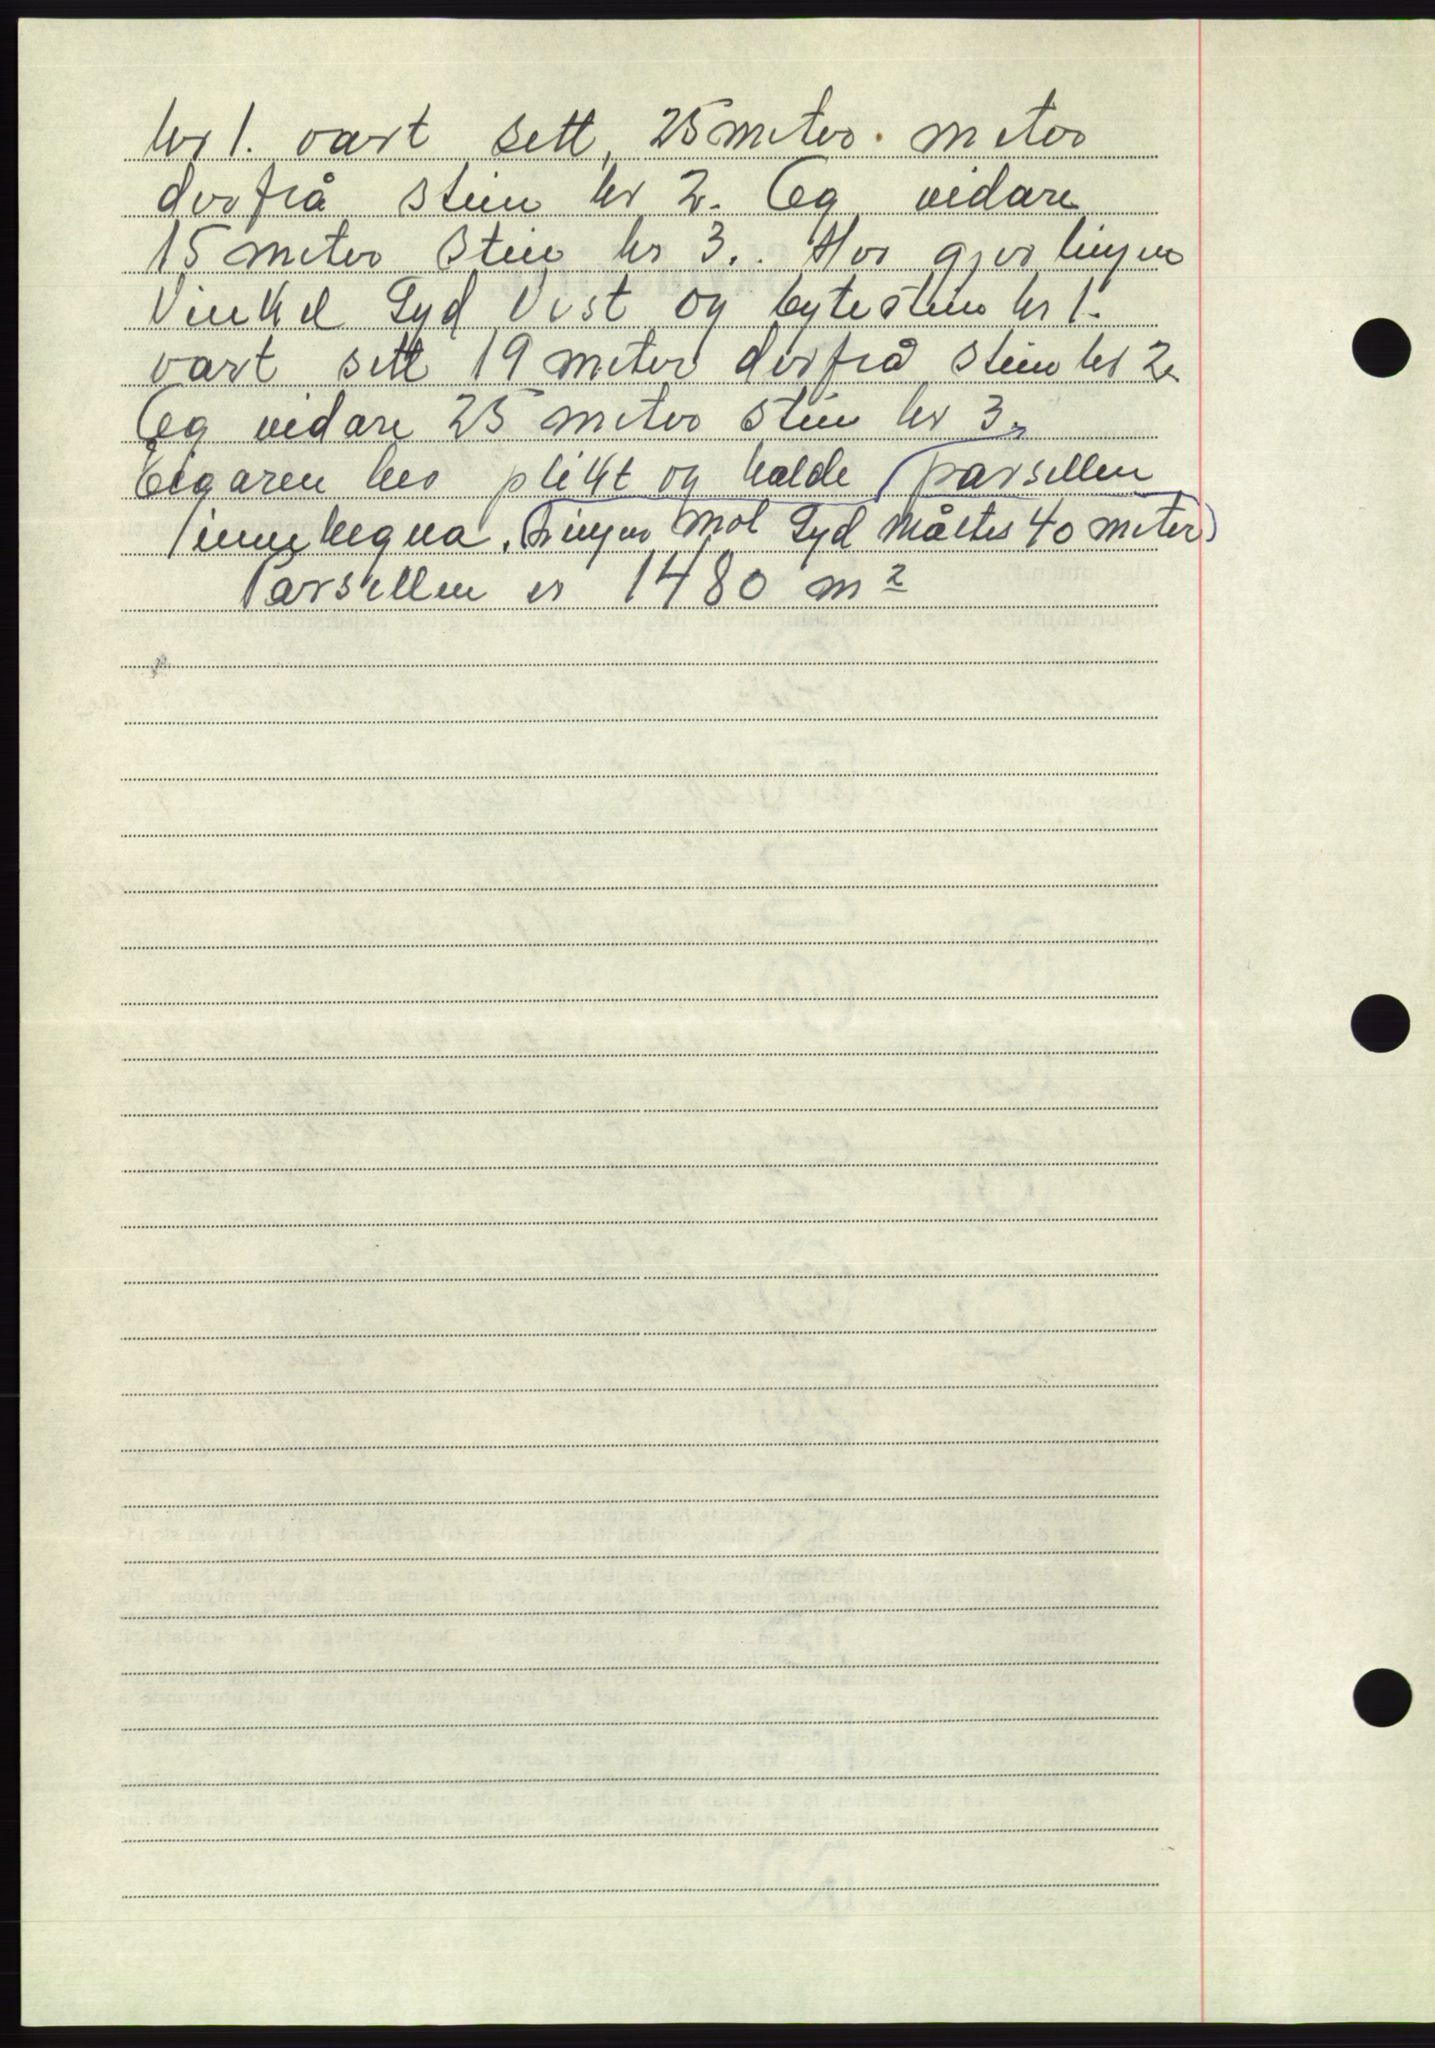 nr 1. vart sett, 25 meter. meter
derfrå stein nr 2. Og vidare
15 meter stein nr 3.. Her gjer linjen
Vinkel Syd Vest og bytestein nr 1.
vart sett 19 meter derfrå stein nr 2.
Og vidare 25 meter stein nr 3.
Eigaren her plikt og halde parsellen
innehegna. (Linjen mot Syd måltes 40 meter)
Parsellen er 1480 m²